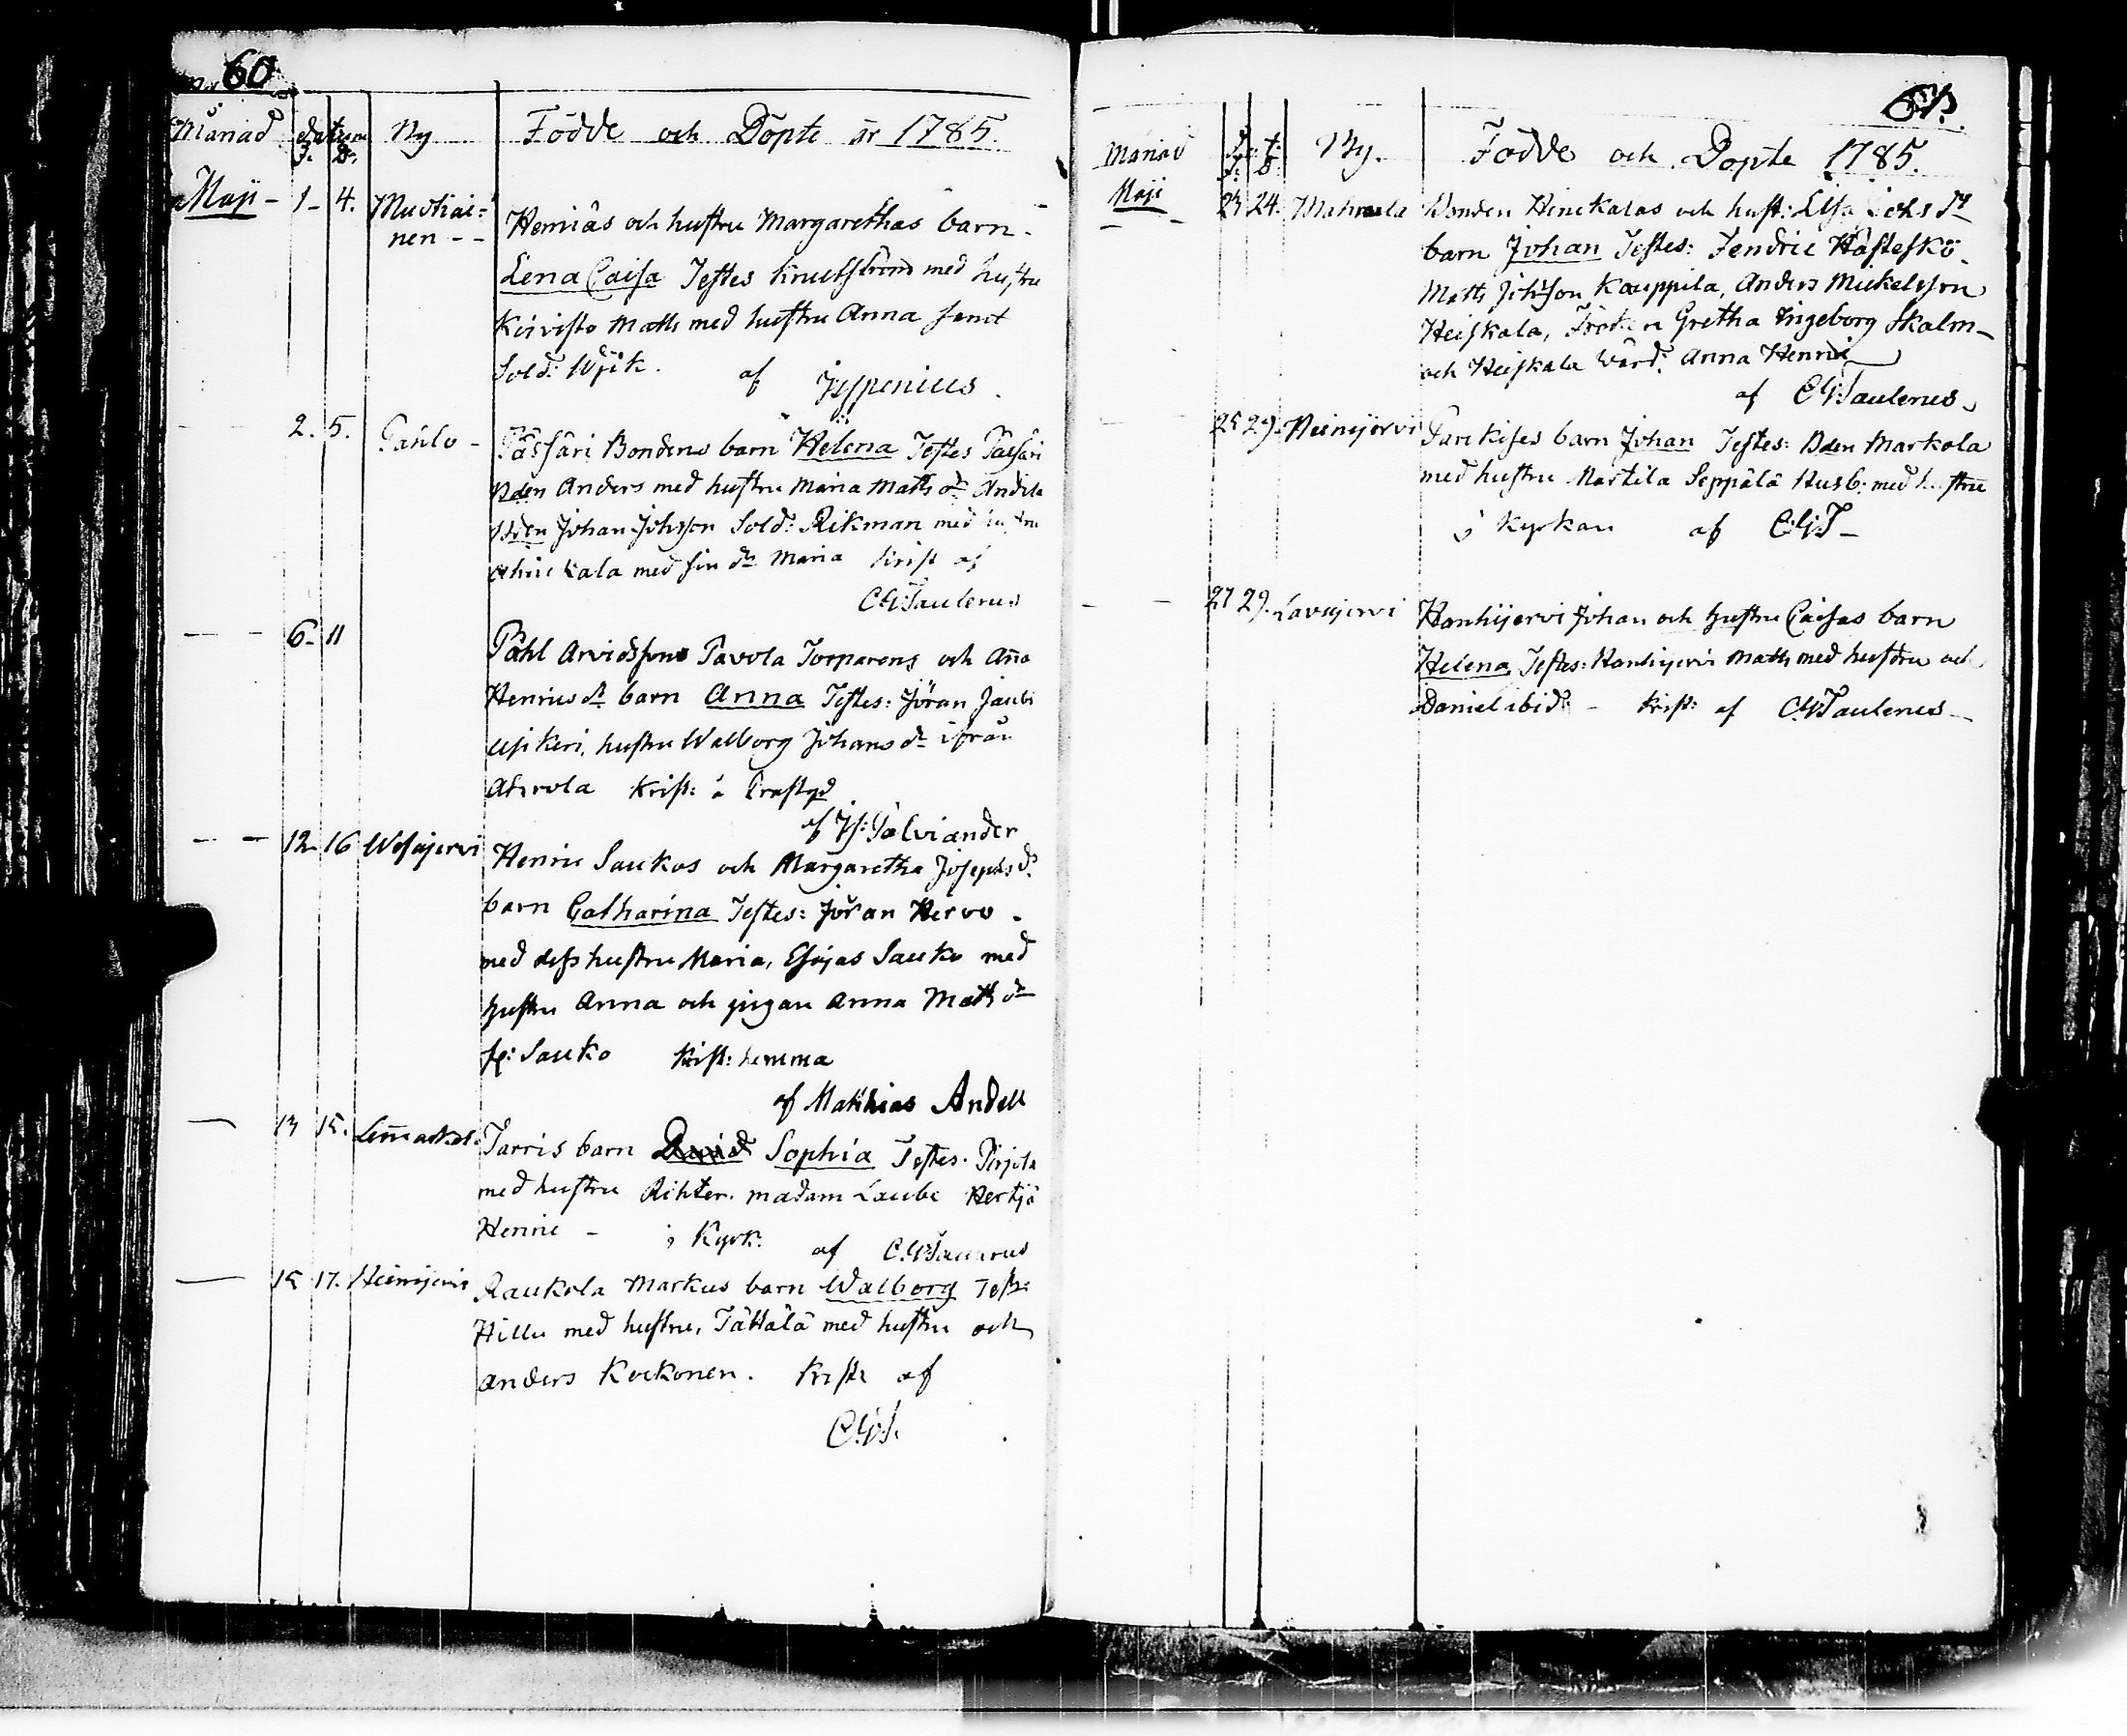 60
Månad datum By Födde och Döpte år 1785.
F. D.
Maji - 1 - 4. Mustiai=
nen - -
Hemiäs och hustru Margarethas barn -
Lena Caisa Testes Knutström med hustru
Koivisto Matts med hustru Anna samt
Sold: Wijk. af Jespenius.
2. 5. Pahlo - Pässäri Bondens barn Helena Testes Pässäri
Bden Anders med hustru Maria Matts dr Andila
Bden Johan Johsson Sold: Rikman med hustru
Ahinkala med sin dr Maria krist af
C.G. Taulerus
6 - 11 Påhl Arvidssons Pavola Torparens och Anna
Henricsdr barn Anna Testes: Jöran Jacobs
hustru Walborg Johans dr ifrån
Ahvola krist: i Prästgd
af Js: Palviander
12 16 Wesajervi Henric Saukos och Margaretha Josephs dr
barn Catharina Testes: Jöran Hervo -
med dess hustru Maria, Esajas Sauko med
hustru Anna och pigan Anna Matts dr
fr: Sauko krist: hemma
af Mathias Andell
13 15. Jarris barn David Sophia Testes. Pirjola
med hustru Rihter. madam Laube Hertjä
Henric - i Kyrk: af C.G. Taulerus
15 17. Heinijervi Raukola Markus barn Walborg Test:
Hillu med hustru, Tättälä med hustru och
Anders Kockonen. krist: af
C.G.T.
61.
Månad Dat: By. Födde och Döpte 1785.
F: D:
Maji 23 24. Mahnala Bonden Hinckalas och hust: Lisa Johs dr
barn Johan Testes: Fendric Hästeskö -
Matts Johsson Kauppila, Anders Mickelsson
Heiskala, Fröken Gretha Ingeborg Skalm -
och Heiskala Wärd: Anna Henrics
af C.G. Taulerus
25 29. Heinijervi Parckises barn Johan Testes: Bden Markola
med hustru Martila Seppälä Husb: med hustru
i Kyrkan af C.G.T -
27 29. Lavajervi Hanhijervi Johan och hustru Caisas barn
Helena Testes: Hanhijervi Matts med hustru och
Daniel ibid: - krist: af C.G. Taulerus -